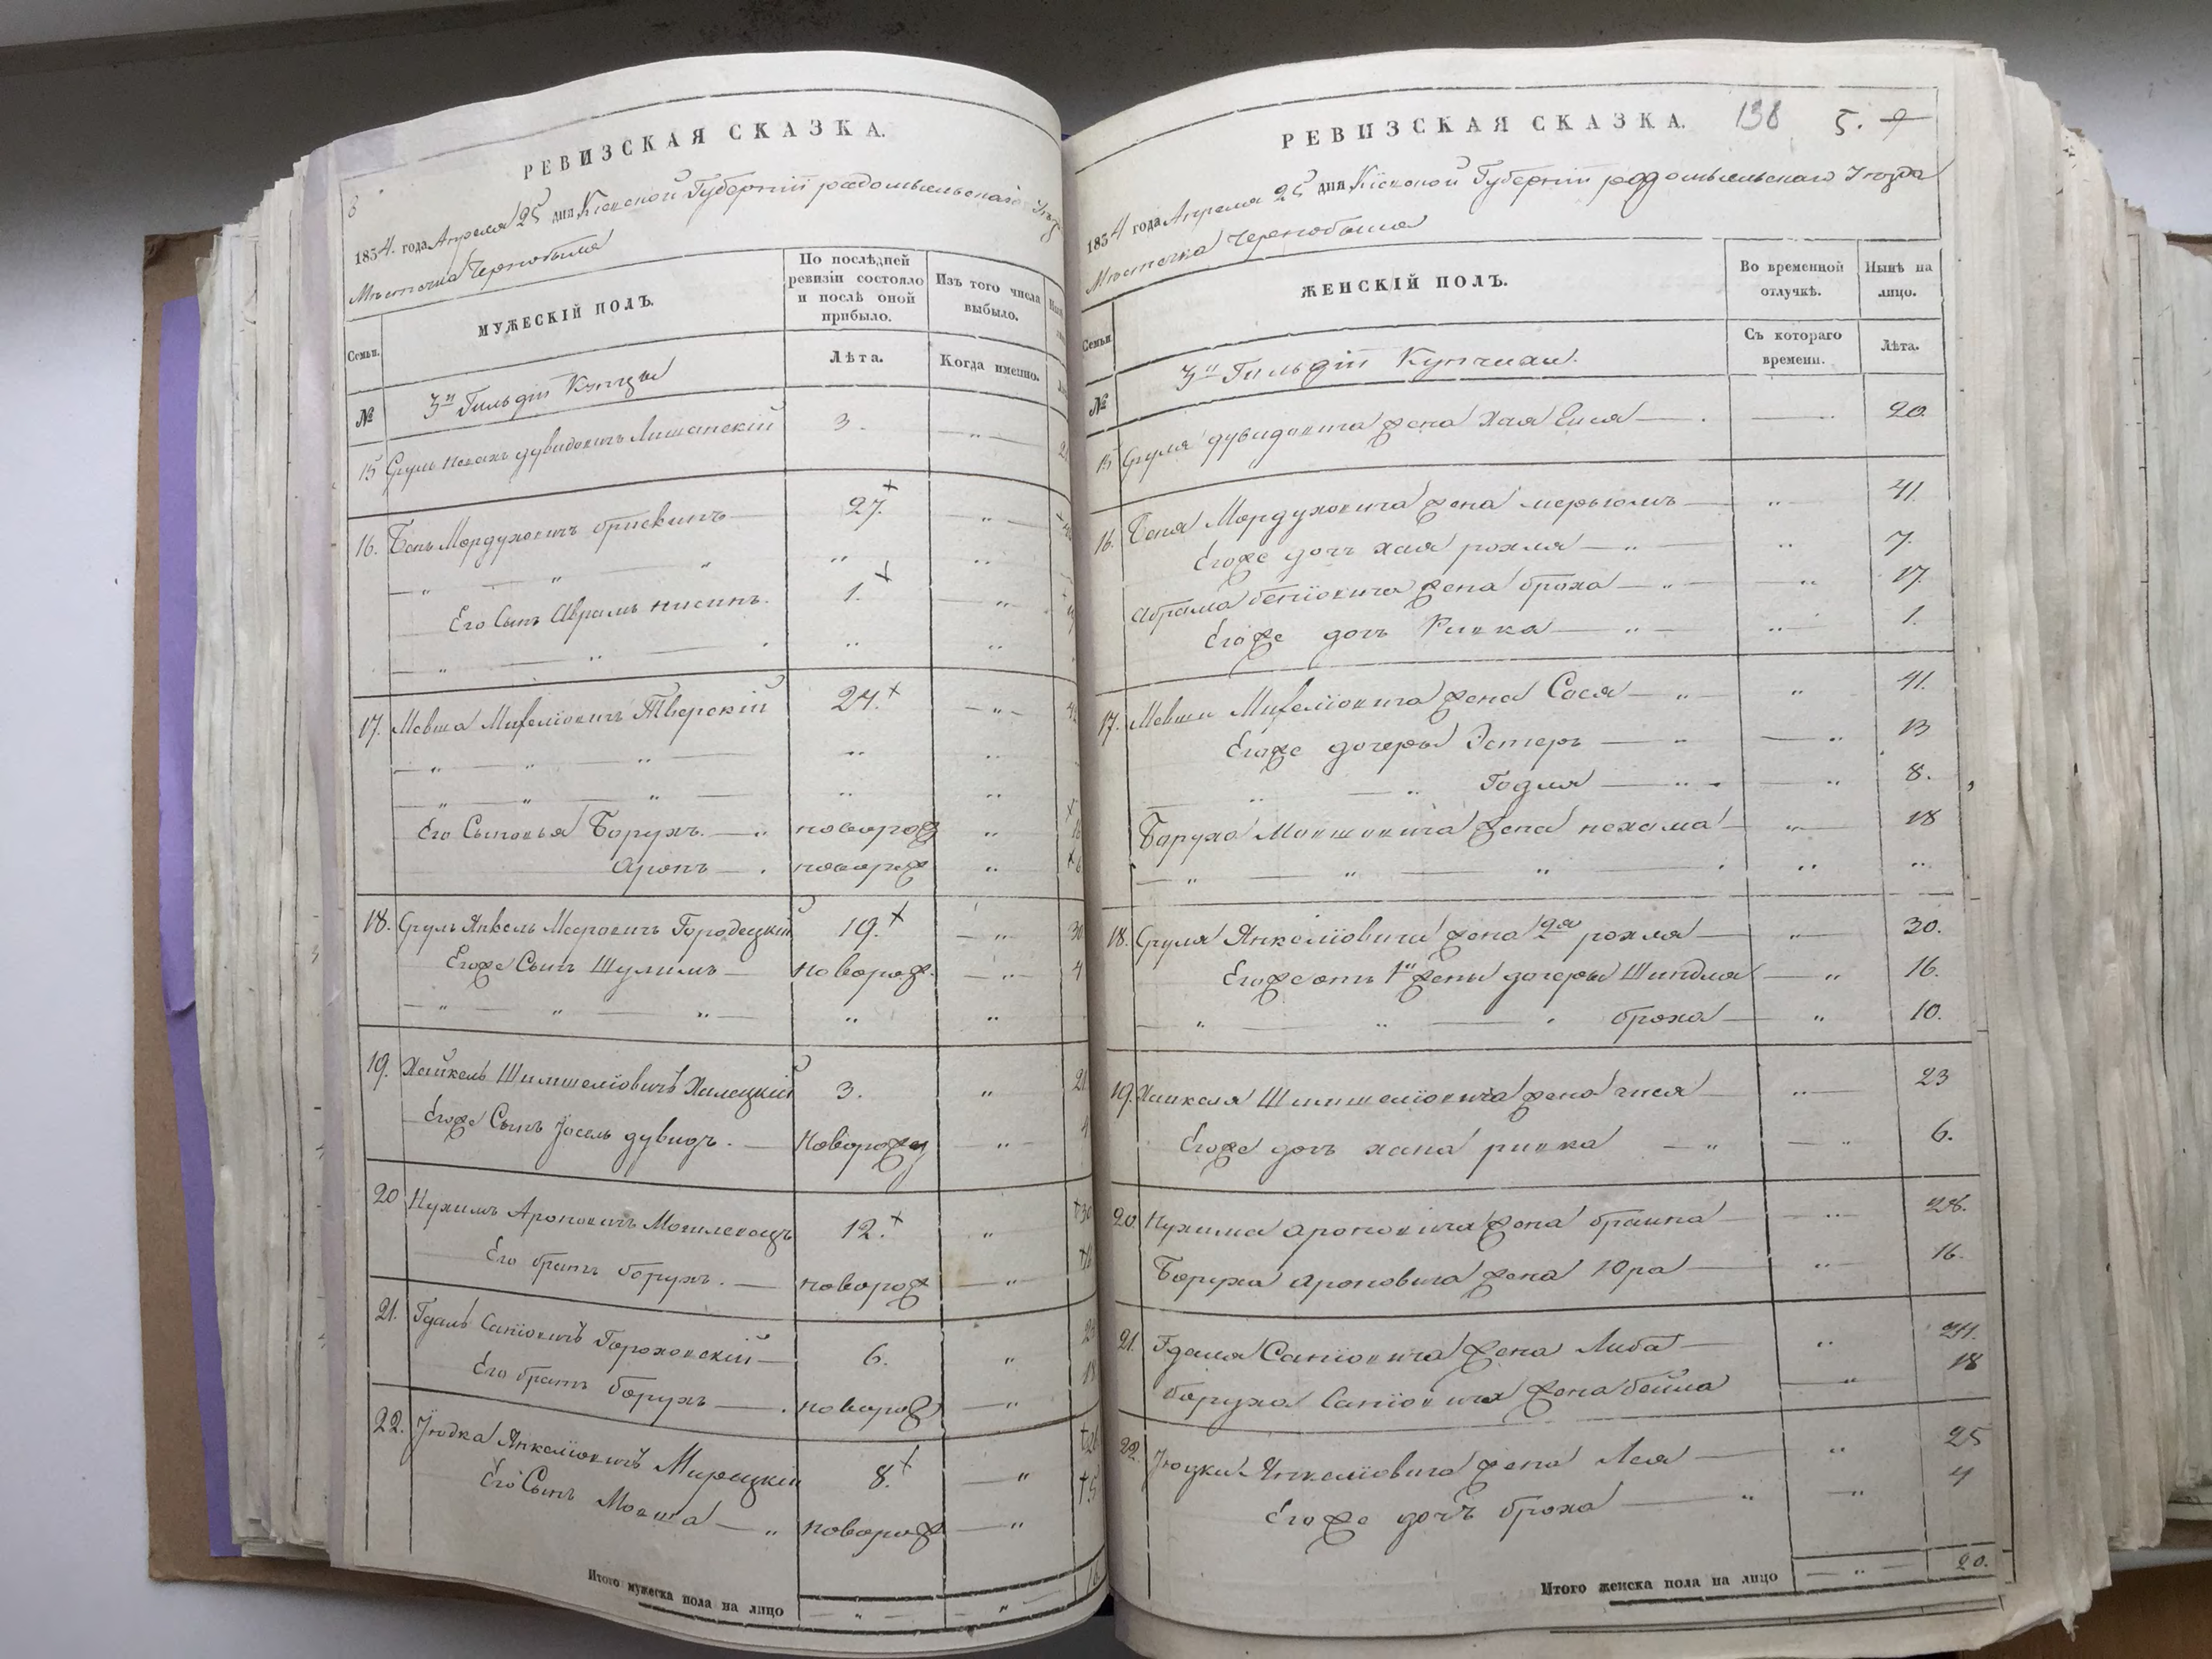 РЕВИЗСКАЯ СКАЗКА.
1854. года Апреля 25 дня Кіевской Губерніи радомысльскаго
Мѣстечка Чернобыля
Семьи.
МУЖЕСКІЙ ПОЛЪ.
По послѣдней ревизіи состояло и послѣ оной прибыло.
Изъ того числа выбыло.
№
3й Гильдіи Купцы
Лѣта.
Когда именно.
15 Сруль дувидовичъ 3.
16. Бень Мордуховичъ брискинъ 27.
Его Сынъ Аврамъ нисинъ. 1.
17. Мовша Тверскій 24.
Его Сыновья Борухъ. новорож
Аронъ новорож
18. Сруль Янкель Мееровичъ Городецкій 19.
Егоже Сынъ Шулимъ новорож.
19. Хайкель Шимшеліовичъ Халецкій 3.
Егоже Сынъ Іосель дувидъ. Новорожд
20 Нухимъ Ароновичъ 12.
Его братъ борухъ. новорож
21. Гдаль Сапіовичъ Гороховскій 6.
Его братъ борухъ новорож
22. Іюдка Янкеліовичъ Мирецкій 8.
Его Сынъ Мовша новорож
Итого мужеска пола на лицо
РЕВИЗСКАЯ СКАЗКА. 138 5.
1854 года Апреля 25 дня Кіевской Губерніи радомысльскаго Уѣзда
Мѣстечка Чернобыля
Семьи
ЖЕНСКІЙ ПОЛЪ.
Во временной отлучкѣ.
Нынѣ на лицо.
№
3й Гильдіи Купчихи.
Съ котораго времени.
Лѣта.
15 Сруля дувидовича жена Хая 20.
16. Беня Мордуховича жена мерьюмъ 41
Егоже дочь хая рохля 7.
Абрама беніовича жена броха 17.
Егоже дочь Ривка 1.
17. Мовши жена Сося 41.
Егоже дочеры Эстеръ 13
Годля 8.
Боруха Мовшовича жена нехама 18
18. Сруля Янкеліовича жена 2я рохля 30.
Егоже отъ 1й жены дочеры Шиндля 16.
броха 10.
19. Хайкеля Шимшеліовича жена 23
Егоже дочь хана ривка 6.
20. Нухима ароновича жена браина 28.
Боруха ароновича жена Юра 16.
21. Гдаля Сапіовича жена Либа 24.
боруха Сапіовича жена бейла 18
22. Іюдки Янкеліовича жена Лея 25
Егоже дочь броха 4
Итого женска пола на лицо 20.